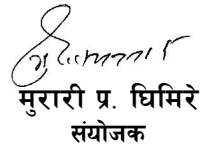 मुरारी प्र. घिमिरे
संयोजक